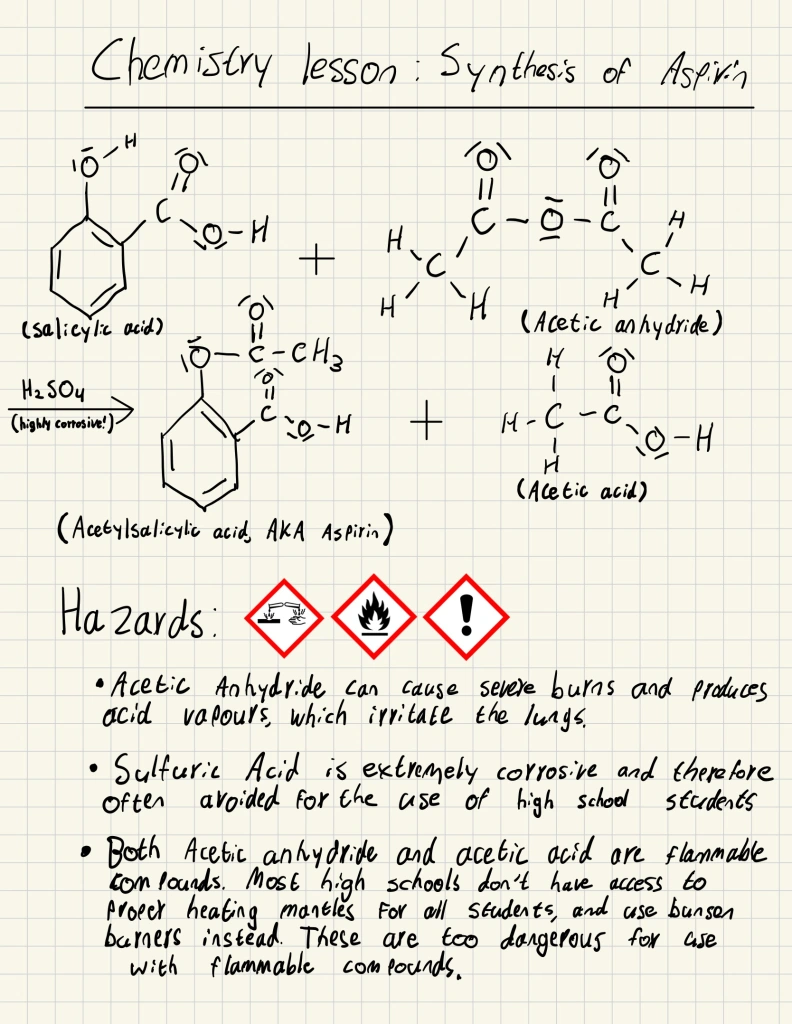 Chemistry lesson: Synthesis of Aspirin
O H O
C
O-H
+
O O
C-O-C
H C H H
H H C H
H
(Salicylic acid)
(Acetic anhydride)
H₂SO₄
(highly corrosive!)
O
O-C-CH₃
O
C
O-H
+
H O
H-C-C
H O-H
(Acetic acid)
(Acetylsalicylic acid, AKA Aspirin)
Hazards:
!
• Acetic Anhydride can cause severe burns and produces
acid vapours, which irritate the lungs.
• Sulfuric Acid is extremely corrosive and therefore
often avoided for the use of high school students
• Both Acetic anhydride and acetic acid are flammable
compounds. Most high schools don't have access to
proper heating mantles for all students, and use bunsen
burners instead. These are too dangerous for use
with flammable compounds.